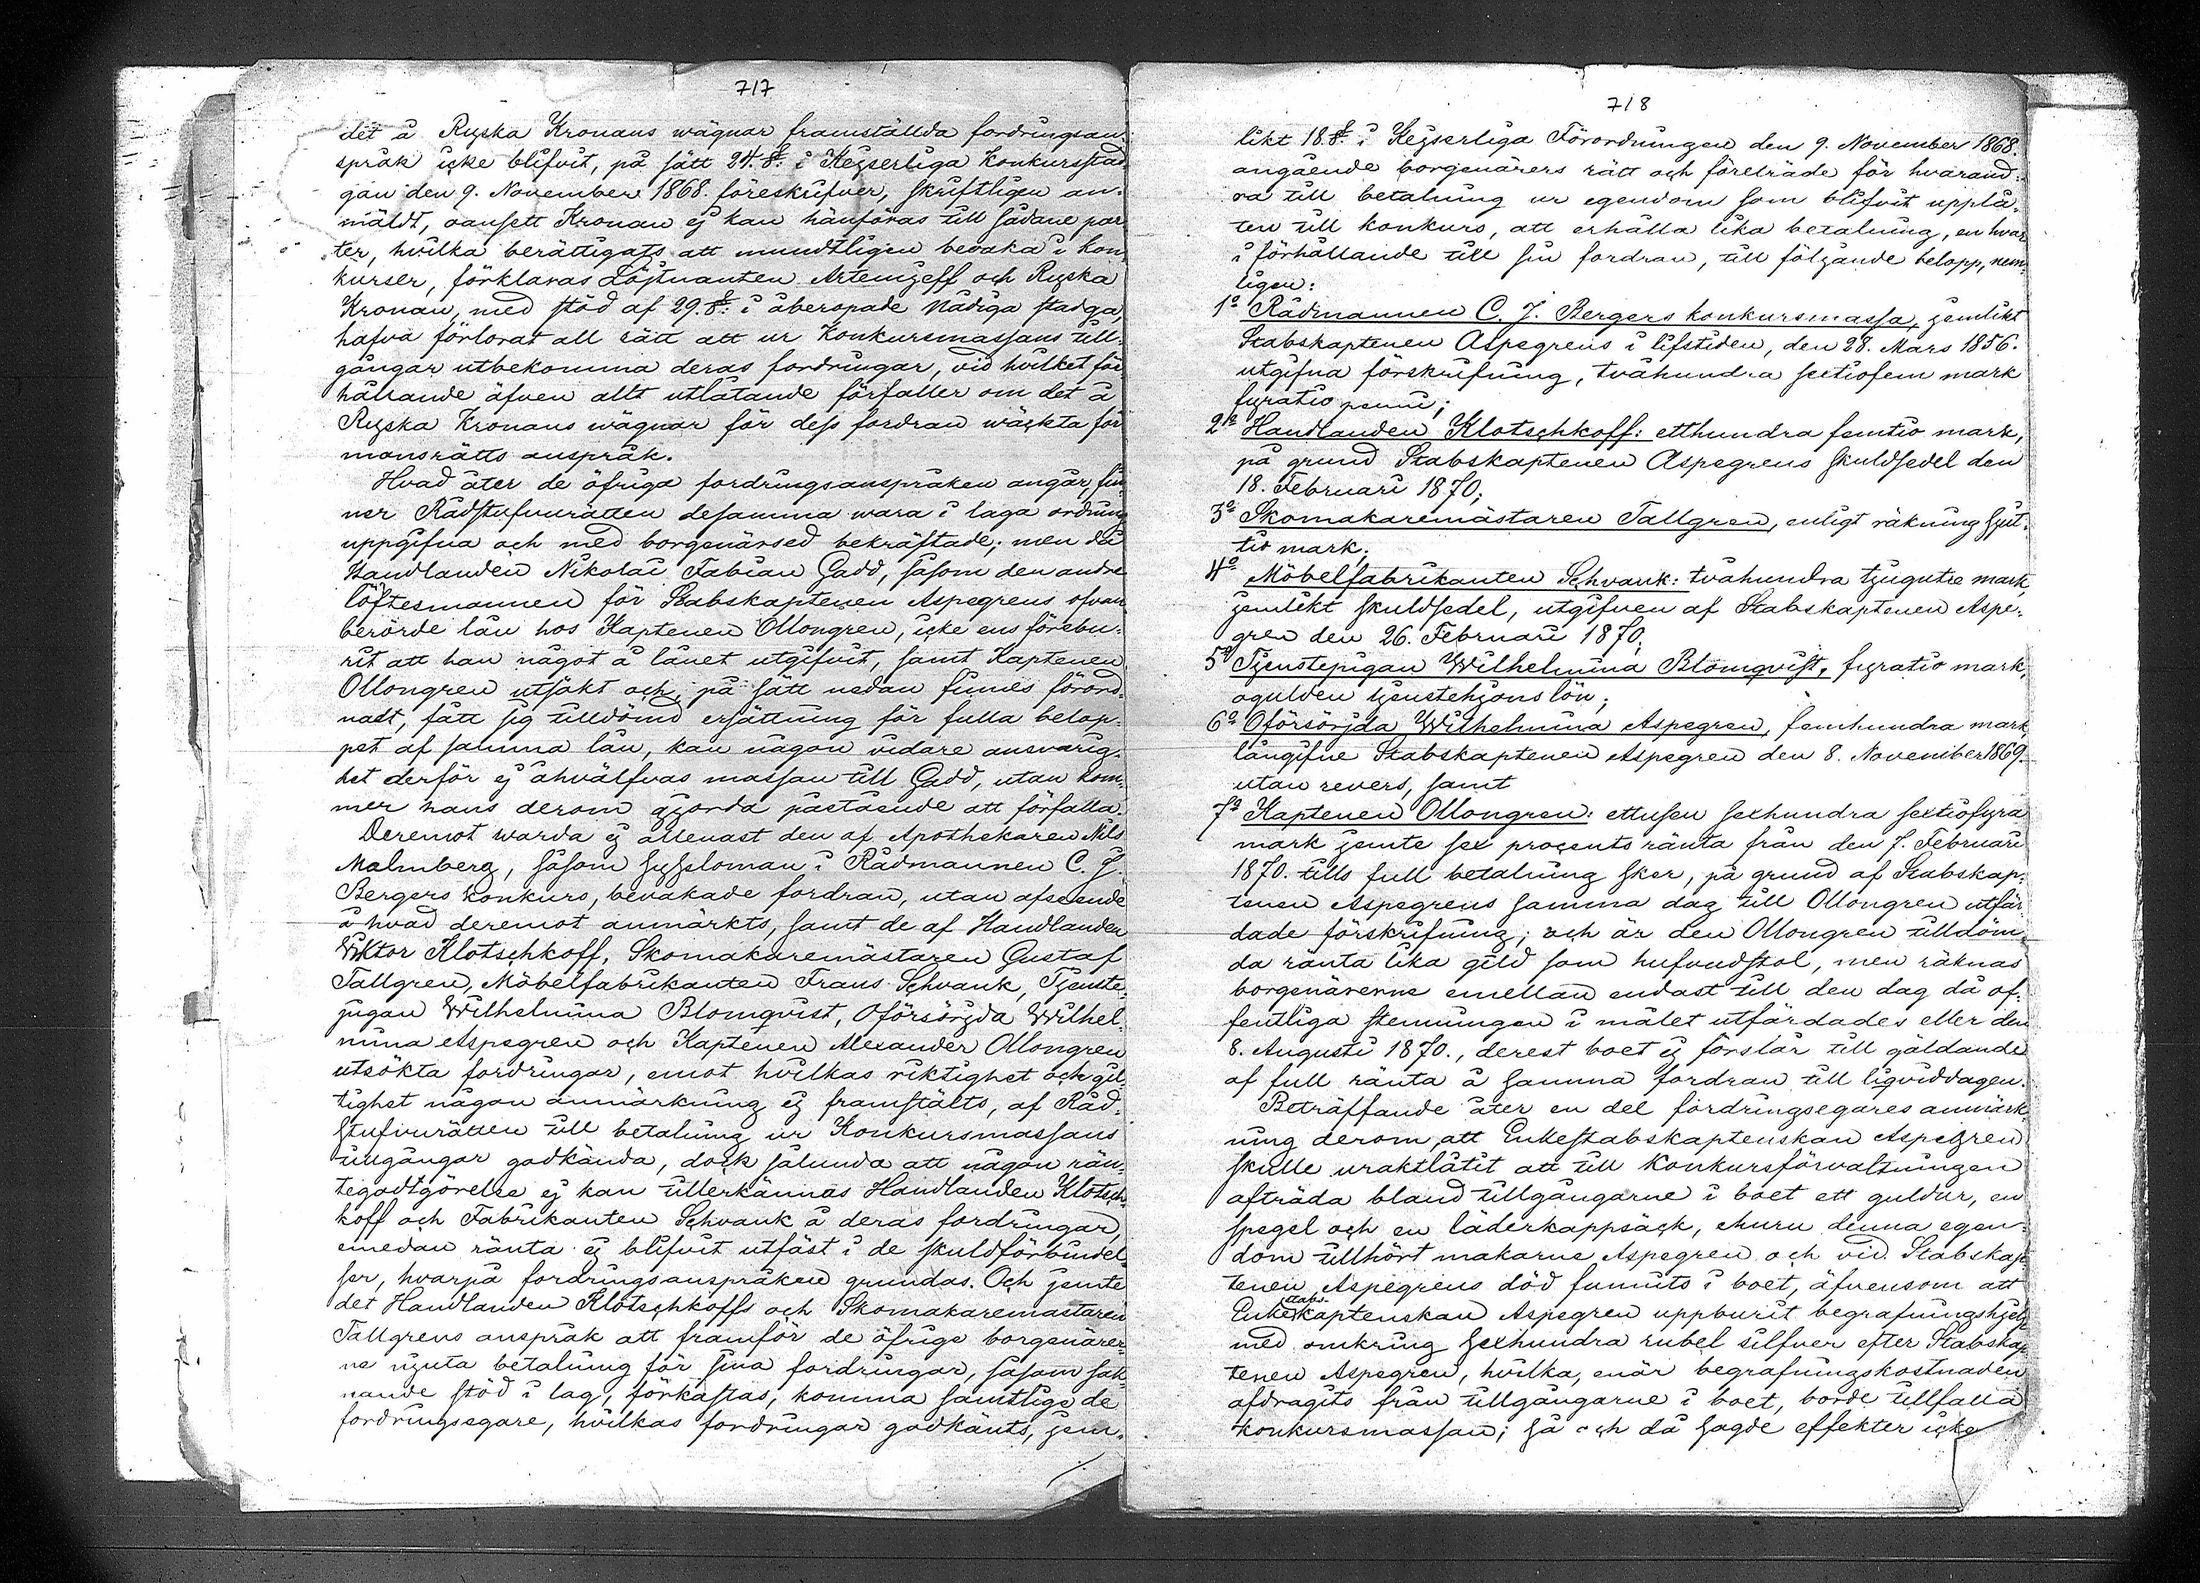 717
det å Ryska Kronans wägnar framställda fordringsan-
språk icke blifvit, på sätt 24. §. i Kejserliga Konkursstad-
gan den 9. November 1868 föreskrifver, skriftligen an-
mäldt, oansett Kronan ej kan hänföras till sådane par-
ter, hvilka berättigats att mundtligen bevaka i kon-
kurser, förklaras Löjtnanten Artemjeff och Ryska
Kronan, med stöd af 29. §. i åberopade Nådiga stadga,
hafva förlorat all rätt att ur Konkursmassans till-
gångar utbekomma deras fordringar, vid hvilket för-
hållande äfven allt utlåtande förfaller om det å
Ryska Kronans wägnar för dess fordran wäckta för-
monsrätts anspråk.
Hvad åter de öfriga fordringsanspråken angår, fin-
ner Rådstufvurätten desamma wara i laga ordning
uppgifna och med borgenärsed bekräftade; men då
Handlanden Nikolai Fabian Gadd, såsom den andre
löftesmannen för Stabskaptenen Aspegrens ofvan
berörde lån hos Kaptenen Ollongren, icke ens förebu-
rit att han något å lånet utgifvit, samt Kaptenen
Ollongren utsökt och, på sätt nedan finnes förord-
nadt, fått sig tilldömd ersättning för fulla belop-
pet af samma lån, kan någon vidare ansvarig-
het derför ej åhvälfvas massan till Gadd, utan kom-
mer hans derom gjorda påstående att förfalla.
Deremot warda ej allenast den af Apothekaren Nils
Malmberg, såsom sysloman i Rådmannen C. J.
Bergers konkurs, bevakade fordran, utan afseende
å hvad deremot anmärkts, samt de af Handlanden
Viktor Klotschkoff, Skomakaremästaren Gustaf
Tallgren, Möbelfabrikanten Frans Schvank, Tjenste-
pigan Wilhelmina Blomqvist, Oförsörjda Wilhel-
mina Aspegren och Kaptenen Alexander Ollongren
utsökta fordringar, emot hvilkas riktighet och gil-
tighet någon anmärkning ej framstälts, af Råd-
stufvurätten till betalning ur Konkursmassans
tillgångar godkända, dock sålunda att någon rän-
tegodtgörelse ej kan tillerkännas Handlanden Klotsch-
koff och Fabrikanten Schvank å deras fordringar,
emedan ränta ej blifvit utfäst i de skuldförbindel-
ser, hvarpå fordringsanspråken grundas. Och jemte
det Handlanden Klotschkoffs och Skomakaremästaren
Tallgrens anspråk att framför de öfriga borgenärer-
ne njuta betalning för sina fordringar, såsom sak-
nande stöd i lag, förkastas, komma samtlige de
fordringsegare, hvilkas fordringar godkänts, jem-
718
likt 18. §. i Kejserliga Förordningen den 9. November 1868.
angående borgenärers rätt och företräde för hvarand-
ra till betalning ur egendom som blifvit upplå-
ten till konkurs, att erhålla lika betalning, en hvar
i förhållande till sin fordran, till följande belopp, nem-
ligen:
1o Rådmannen C. J. Bergers konkursmassa, jemlikt
Stabskaptenen Aspegrens i lifstiden, den 28. Mars 1856.
utgifna förskrifning, tvåhundra sextiofem mark
fyratio penni;
2o Handlanden Klotschkoff: etthundra femtio mark,
på grund Stabskaptenen Aspegrens skuldsedel den
18. Februari 1870;
3o Skomakaremästaren Tallgren, enligt räkning sjut-
tio mark;
4o Möbelfabrikanten Schvank: tvåhundra tjugutre mark,
jemlikt skuldsedel, utgifven af Stabskaptenen Aspe-
gren den 26. Februari 1870;
5o Tjenstepigan Wilhelmina Blomqvist, fyratio mark,
ogulden tjenstehjonslön;
6o Oförsörjda Wilhelmina Aspegren, femhundra mark,
långifne Stabskaptenen Aspegren den 8. November 1869.
utan revers, samt
7o Kaptenen Ollongren: ettusen sexhundra sextiofyra
mark jemte sex procents ränta från den 7. Februari
1870. tills full betalning sker, på grund af Stabskap-
tenen Aspegrens samma dag till Ollongren utfär-
dade förskrifning; och är den Ollongren tilldöm-
da ränta lika gild som hufvudstol, men räknas
borgenärerne emellan endast till den dag då of-
fentliga stemningen i målet utfärdades eller den
8. Augusti 1870., derest boet ej förslår till gäldande
af full ränta å samma fordran till liqviddagen.
Beträffande åter en del fordringsegares anmärk-
ning derom, att Enkestabskaptenskan Aspegren
skulle uraktlåtit att till Konkursförvaltningen
afträda bland tillgångarne i boet ett guldur, en
spegel och en läderkappsäck, ehuru denna egen-
dom tillhört makarne Aspegren och vid Stabskap-
tenen Aspegrens död funnits i boet, äfvensom att
Enkestabskaptenskan Aspegren uppburit begrafningshjelp
med omkring sexhundra rubel silfver efter Stabskap-
tenen Aspegren, hvilka, enär begrafningskostnaden
afdragits från tillgångarne i boet, borde tillfalla
konkursmassan; så och då sagde effekter icke